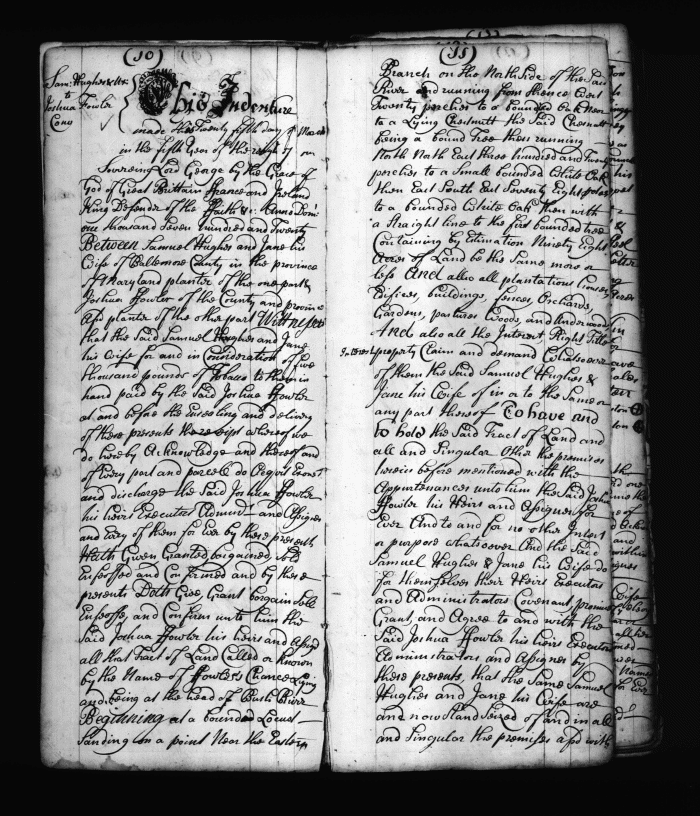 (10)
Sam: Hughes & Ux:
to
Joshua Fowler
Conv
This Indenture
made the Twenty fifth day of March
in the fifth Year of the reign of our
Sovereign Lord George by the Grace of
God of Great Brittain ffrance and Ireland
King Defender of the ffaith &c: Anno Dom:
one thousand Seven hundred and Twenty
Between Samuel Hughes and Jane his
Wife of Baltemore County in the province
of Maryland planter of the one part
Joshua ffowler of the County and province
Afd planter of the other part Wittneseth
that the Said Samuel Hughes and Jane
his Wife for and in Consideration of five
thousand pounds of Tobacco to them in
hand paid by the said Joshua ffowler
at and before the ensealing and delivery
of these presents the receipt whereof we
do hereby Acknowledge and thereof and
of Every part and parcel do Acquit Exon:t
and discharge the Said Joshua ffowler
his heirs Executors Adminrs and Assignes
and Every of them for Ever by these presents
Hath Given Granted bargained Sold
Enfeoffed and Confirmed and by these
presents Doth Give, Grant bargain Sell
Enfeoffe, and Confirm unto him the
Said Joshua ffowler his heirs and Assigs
all that Tract of Land Called or known
by the Name of ffowlers Chance Lying
and being at the head of Bush River
Beginning at a bounded Locust
Standing on a point Near the Eastern
(11)
Branch on the North Side of the Said
River and running from thence East
Twenty perches to a bounded Oak Near
to a Lying Chesnutt the Said Chesnutt
being a bound Tree then running
North North East three hundred and Twenty
perches to a Small bounded White Oak
then East South East Seventy Eight poles
to a bounded White Oak Then with
a Straight line to the first bounded tree
Containing by Estimation Ninety Eight
Acres of Land be the Same more or
less And also all plantations houses
Edifices, buildings, fences Orchards,
Gardens, pastures Woods and Underwoods
And also all the Interest Right Title
Interest property Claim and demand Whatsoever
of them the Said Samuel Hughes &
Jane his Wife of in a to the Same or
any part thereof To have and
to hold the Said Tract of Land and
all and Singular Other the premises
herein before mentioned with the
Appurtenances unto him the said Josh
ffowler his Heirs and Assignes for
Ever And to and for no other Intent
or purpose whatsoever And the Said
Samuel Hughes & Jane his Wife do
for themselves their Heirs Executors
and Administrators Covenant promise
Grant, and Agree to and with the
Said Joshua ffowler his heirs Executors
Administrators and Assignes by
these presents, that the Same Samuel
Hughes and Jane his Wife are
and now Stand Seized of and in all
and Singular the premises afd with